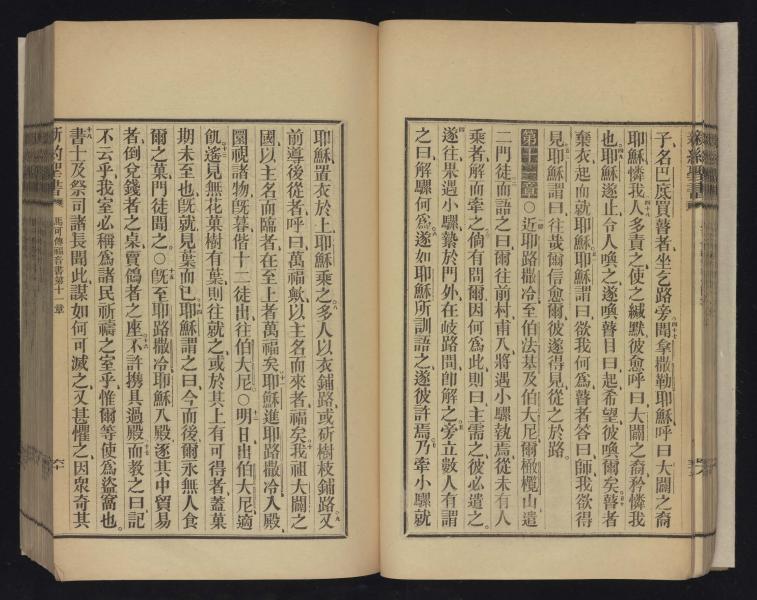 子、名巴底買瞽者、坐乞路旁、聞拿撒勒耶穌、呼曰、大闢之裔
耶穌憐我、人多責之、使之緘默、彼愈呼曰、大闢之裔、矜憐我
也、耶穌遂止、令人喚之、遂喚瞽目曰、起希望、彼喚爾矣、瞽者
棄衣起而就耶穌、耶穌謂曰、欲我何為、瞽者答曰、師、我欲得
見、耶穌謂曰、往哉、爾信愈爾、彼遂得見、從之於路。
第十一章 ○近耶路撒冷、至伯法基及伯大尼、爾橄欖山、遣
二門徒而語之曰、爾往前村、甫入、將遇小騾縶焉、從未有人
乘者、解而牽之、倘有問爾因何為此、則曰、主需之、彼必遣之。
遂往、果遇小騾縶於門外、在岐路間、卽解之、旁立數人有謂
之曰、解騾何為、遂如耶穌所訓語之、遂彼許焉、乃牽小騾就
耶穌、置衣於上、耶穌乘之、多人以衣鋪路、或斫樹枝鋪路、又
前導後從者、呼曰、萬福歟、以主名而來者、福矣、我祖大闢之
國、以主名而臨者、在至上者萬福矣、耶穌進耶路撒冷、入殿、
圜視諸物、旣暮、偕十二徒出、往伯大尼○明日出伯大尼、適
飢、遙見無花菓樹有葉、則往就之、或於其上有可得者、蓋菓
期未至也、旣就、見葉而已、耶穌謂之曰、今而後、爾永無人食
爾之菓、門徒聞之○旣至耶路撒冷、耶穌入殿、逐其中貿易
者、倒兌錢者之桌、賣鴿者之座、不許携具過殿、而教之曰、記
不云乎、我室必稱為諸民祈禱之室乎、惟爾等使為盜窩也。
書士及祭司諸長聞此、謀如何可滅之、又甚懼之、因眾奇其
新約聖書
馬可傳福音書第十一章